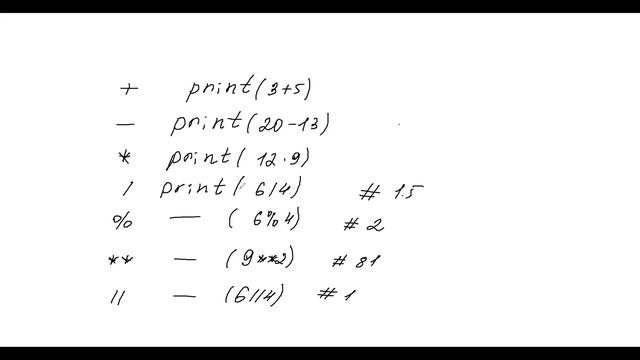 + print(3+5)
- print(20-13)
* print(12·9)
/ print(6/4) # 1.5
% — (6%4) # 2
** — (9**2) # 81
// — (6//4) # 1